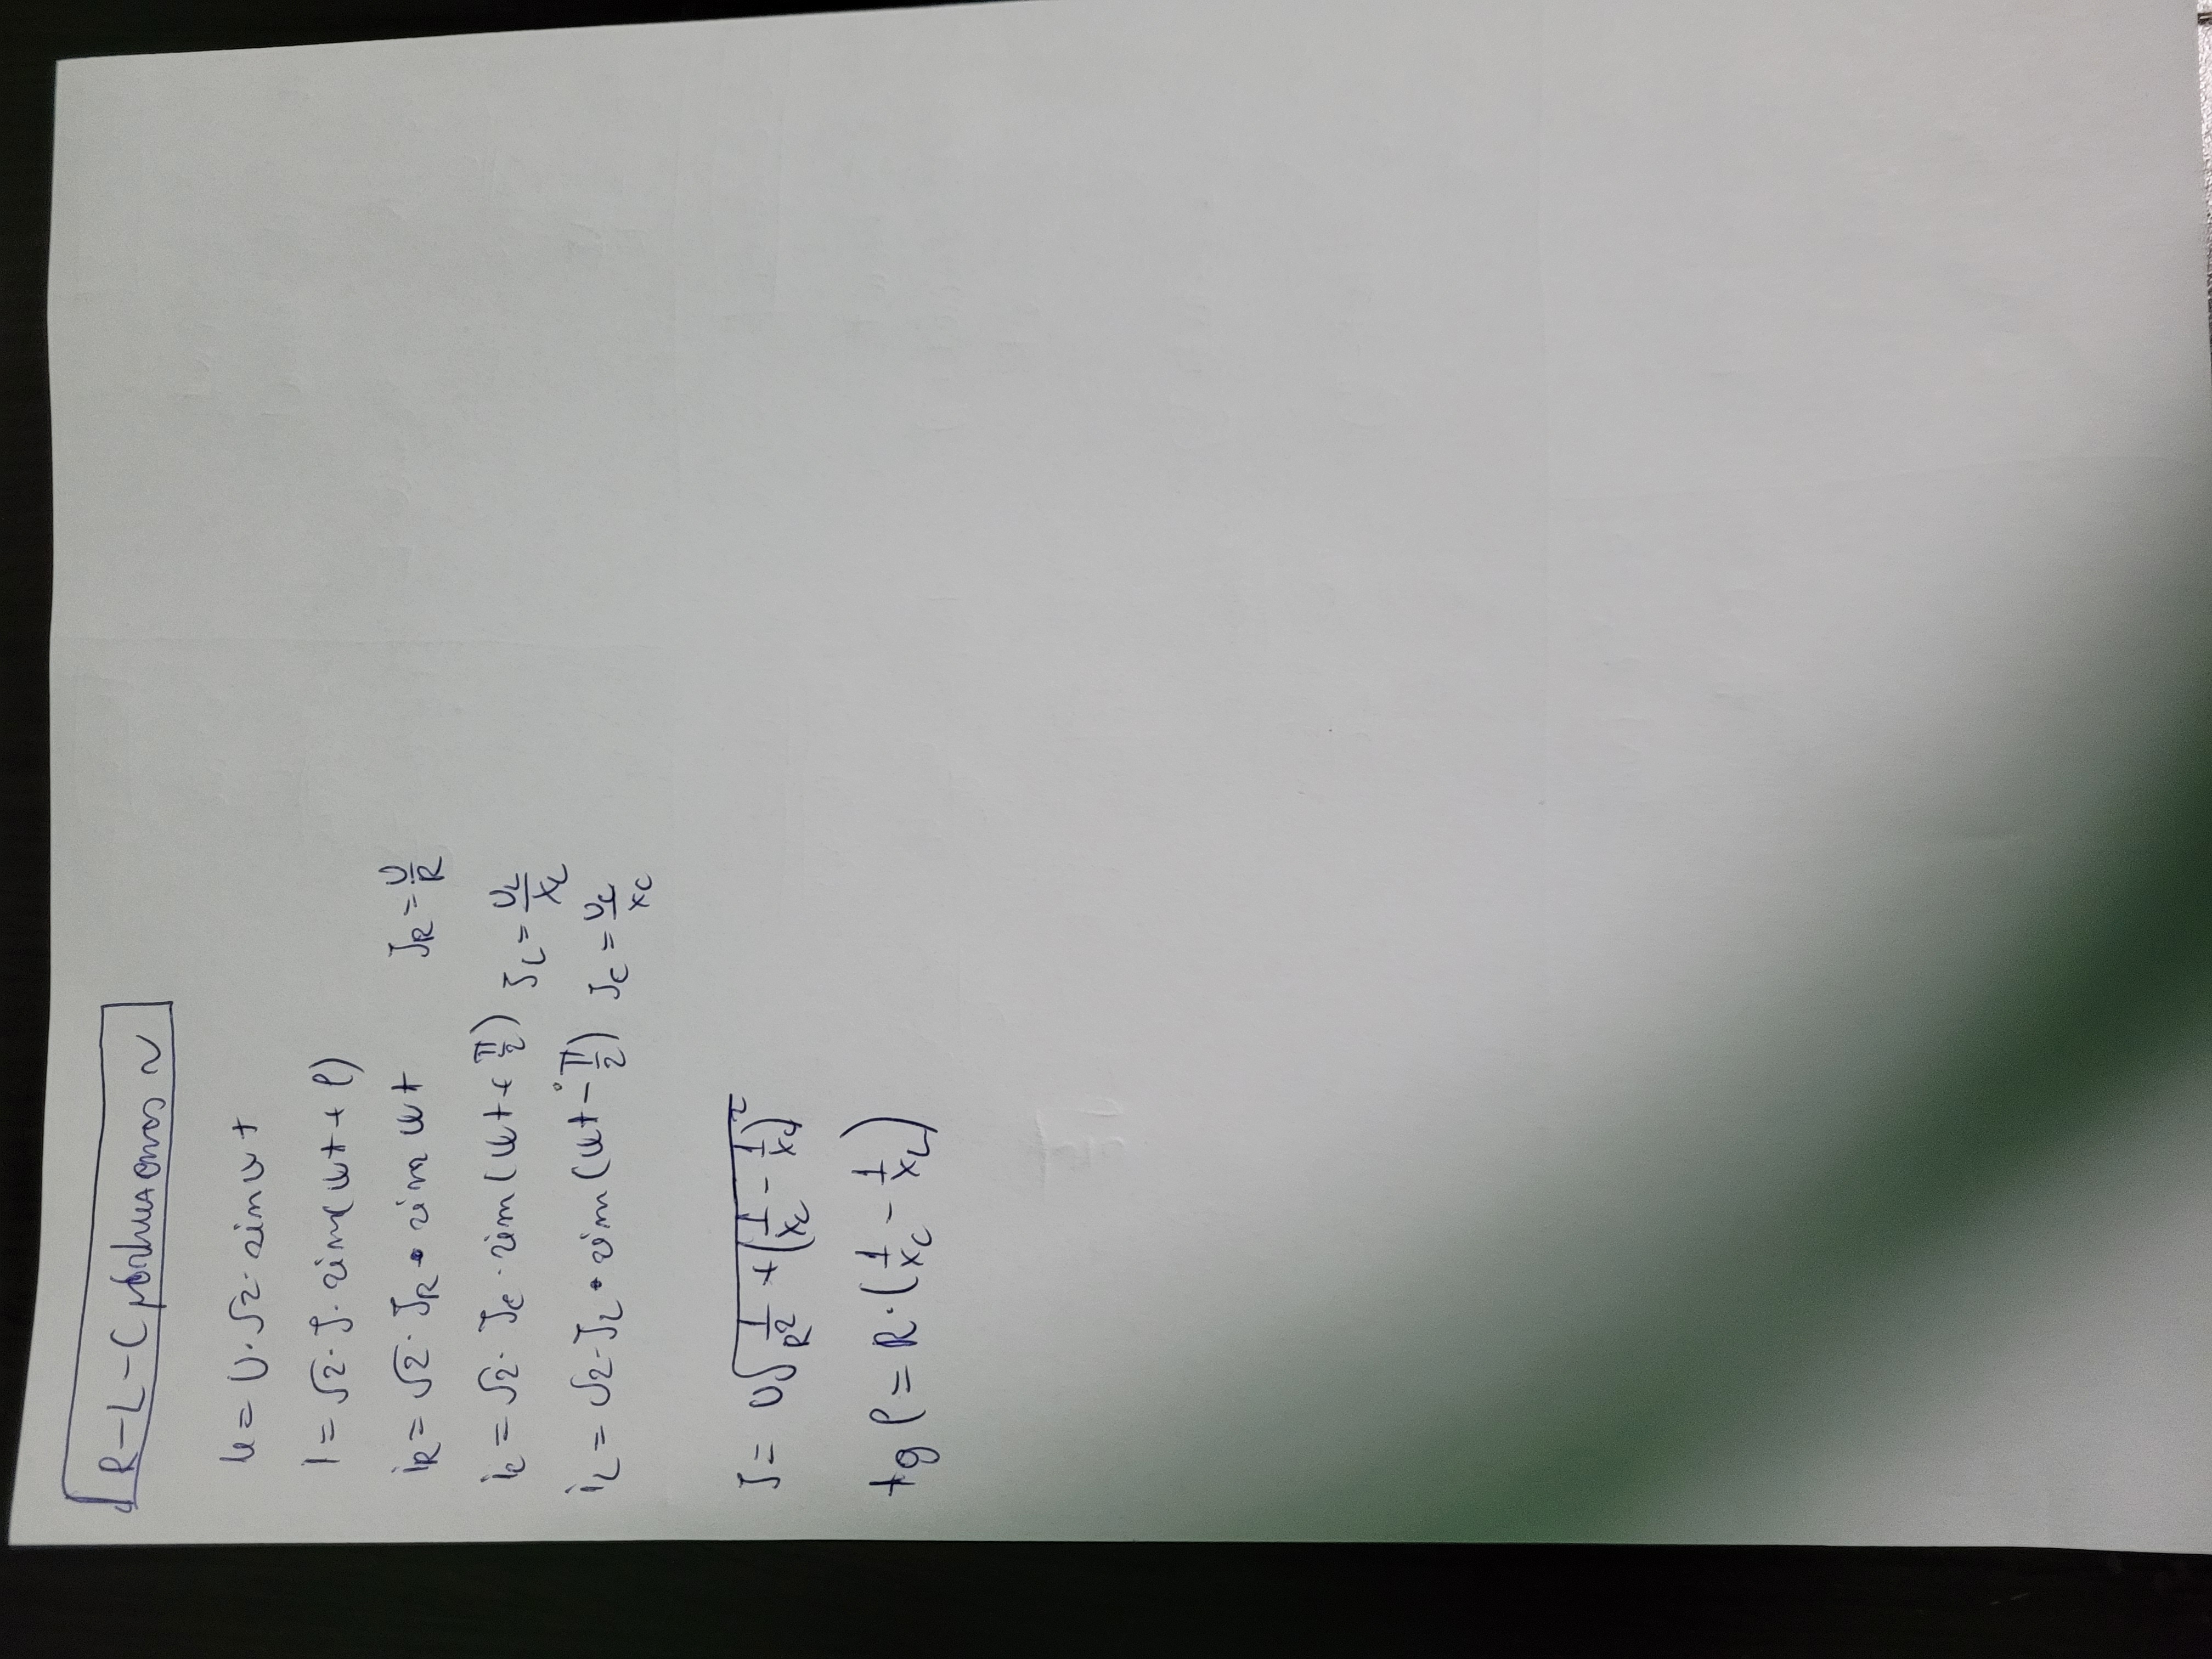 R-L-C párhuzamos ~
u = U·√2· sin ωt
i = √2· I· sin(ωt + φ)
iR = √2· IR • sin ωt IR = U/R
ic = √2· Ic · sin(ωt + π/2) IL = UL/XL
iL = √2· IL • sin(ωt - π/2) Ic = Uc/Xc
I = U√(1/R² + (1/Xc - 1/XL)²)
tg φ = R·(1/Xc - 1/XL)